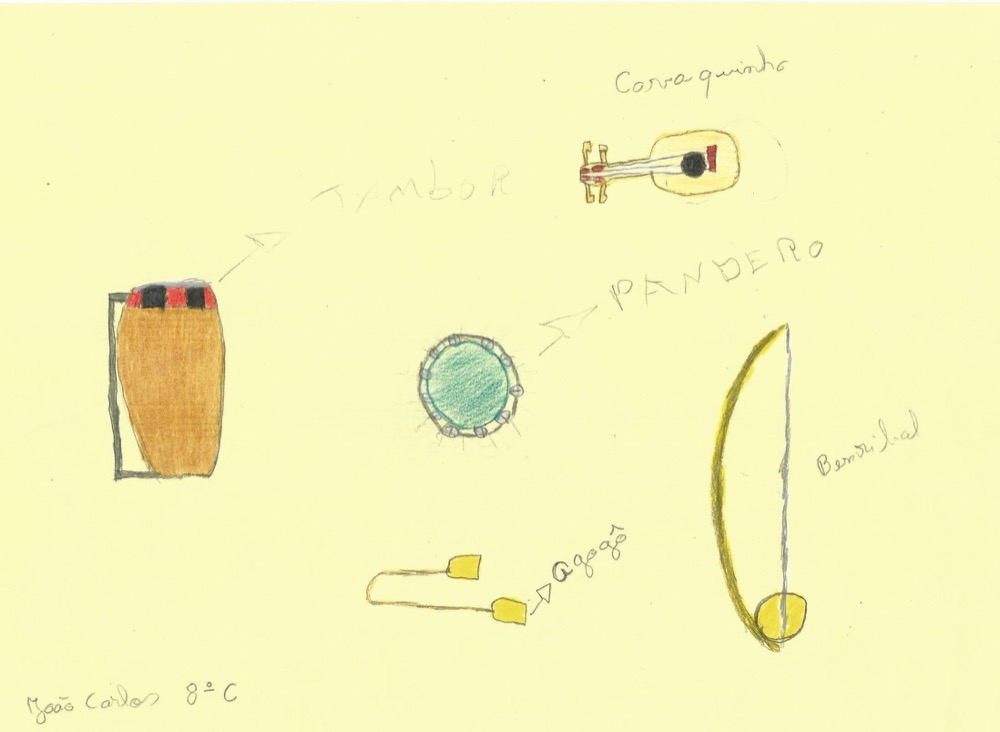 Corvaquinho
TAMBOR
PANDERO
Berribal
agogô
João Carlos 8º C